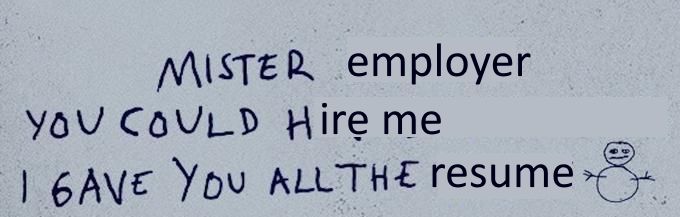 MISTER employer
YOU COULD Hire me
I GAVE YOU ALL THE resume